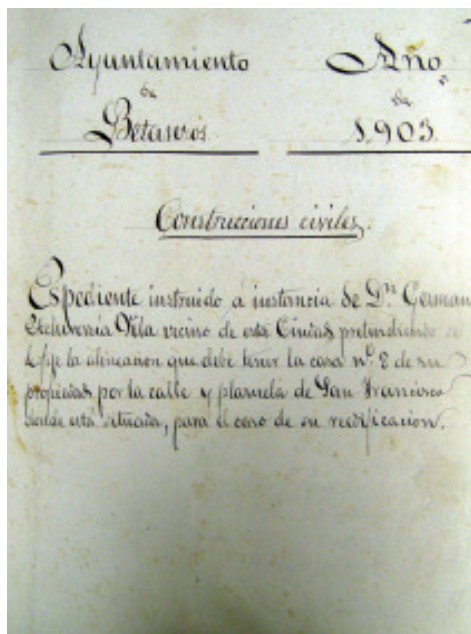 Ayuntamiento Año
de de
Betanzos. 1.903.
Construcciones civiles.
Espediente instruido á instancia de Dn. German
Etcheverría Vila vecino de esta Ciudad, pretendiendo se
le fije la alineacion que debe tener la casa nº. 2 de su
propiedad por la calle y plazuela de San Francisco
donde está situada, para el caso de su reedificacion.